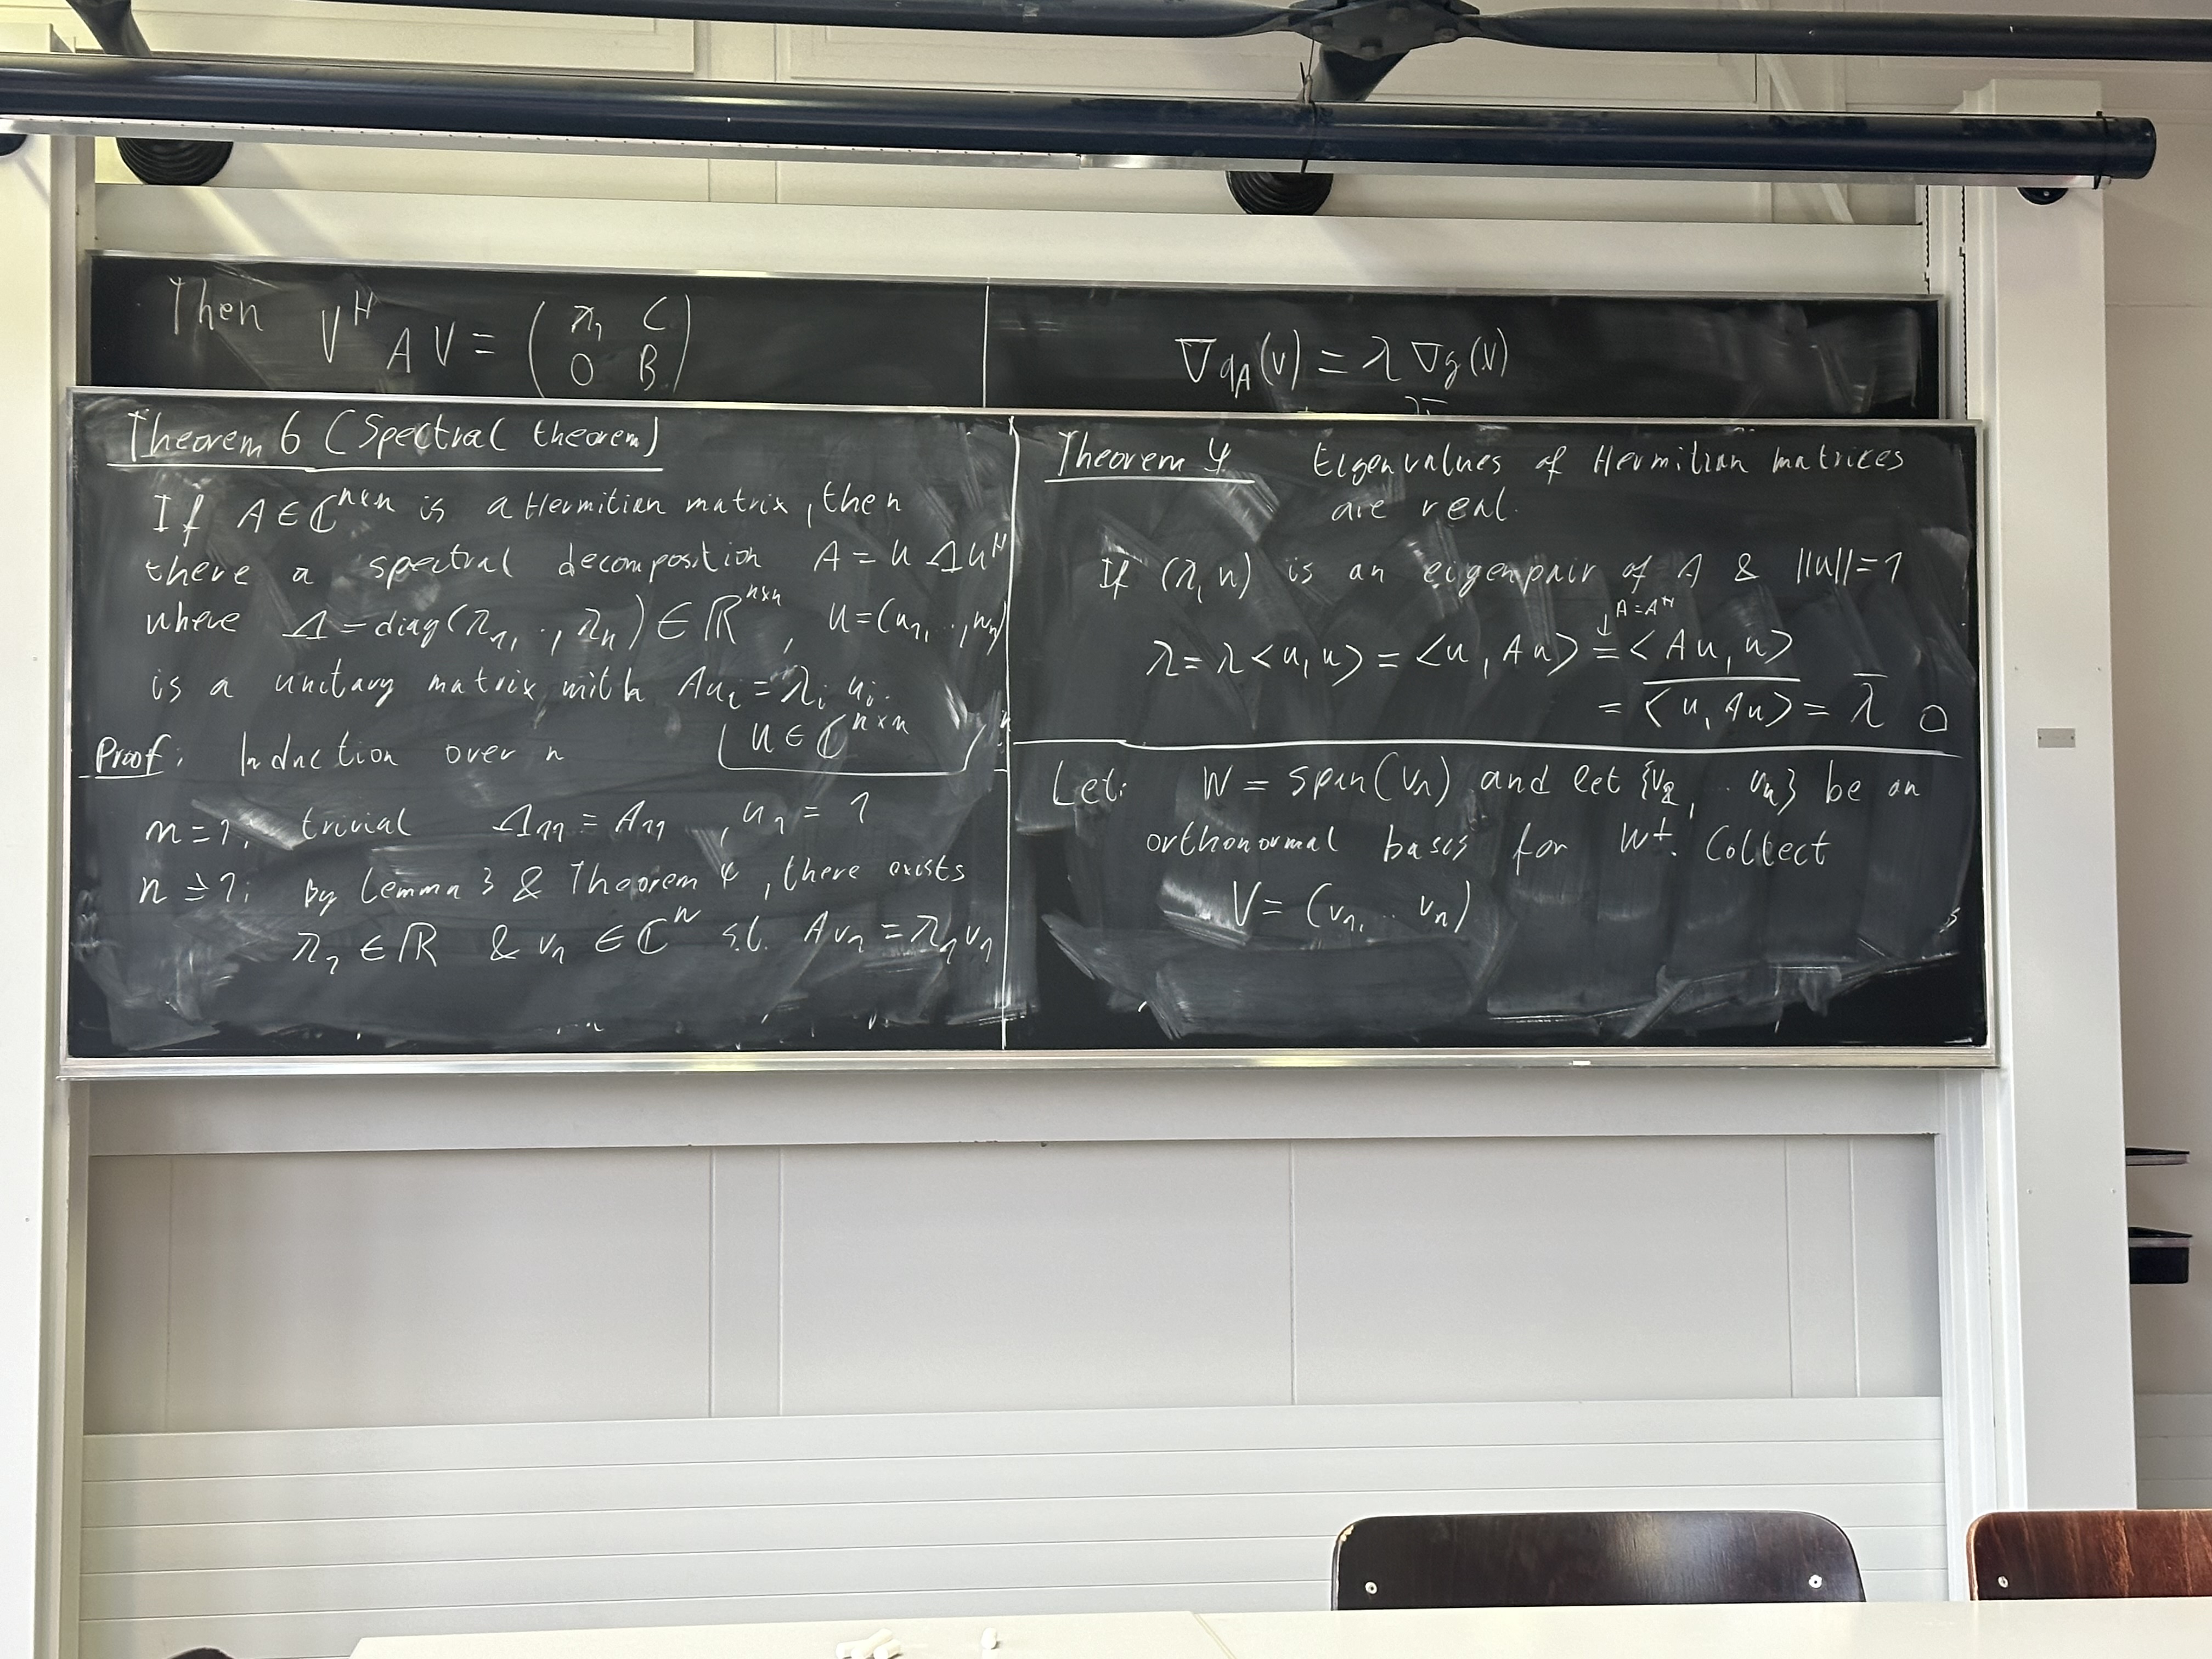 Then V^H A V = (λ₁ C
0 B)
∇q_A(v) = λ ∇g(v)
Theorem 6 (Spectral theorem)
If A ∈ ℂ^{n×n} is a Hermitian matrix, then
there a spectral decomposition A = U Λ U^H
where Λ = diag(λ₁, .., λₙ) ∈ ℝ^{n×n}, U = (u₁, .., uₙ)
is a unitary matrix with Au_i = λ_i u_i.
U ∈ ℂ^{n×n}
Proof: Induction over n
n = 1: trivial Λ₁₁ = A₁₁, u₁ = 1
By Lemma 3 & Theorem 4, there exists
λ₁ ∈ ℝ & v₁ ∈ ℂ^n s.t. Av₁ = λ₁v₁
Theorem 4 Eigenvalues of Hermitian matrices
are real.
If (λ, u) is an eigenpair of A & ||u|| = 1
↓ A = A^H
λ = λ<u, u> = <u, Au> = <Au, u>
= \overline{<u, Au>} = \overline{λ} □
Let: W = span(v₁) and let {v₂, .. vₙ} be an
orthonormal basis for W^⊥. Collect
V = (v₁, .. vₙ)